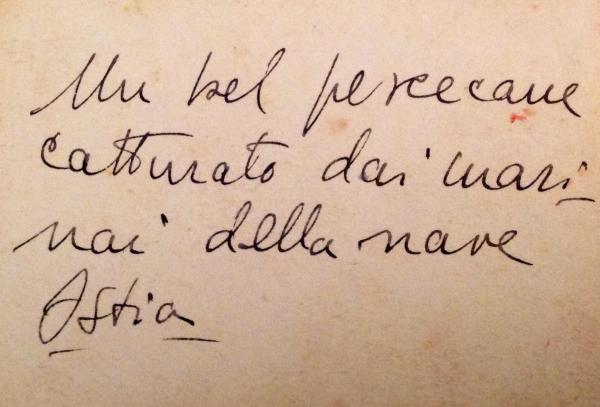 Un bel pescecane
catturato dai mari-
nai della nave
Ostia